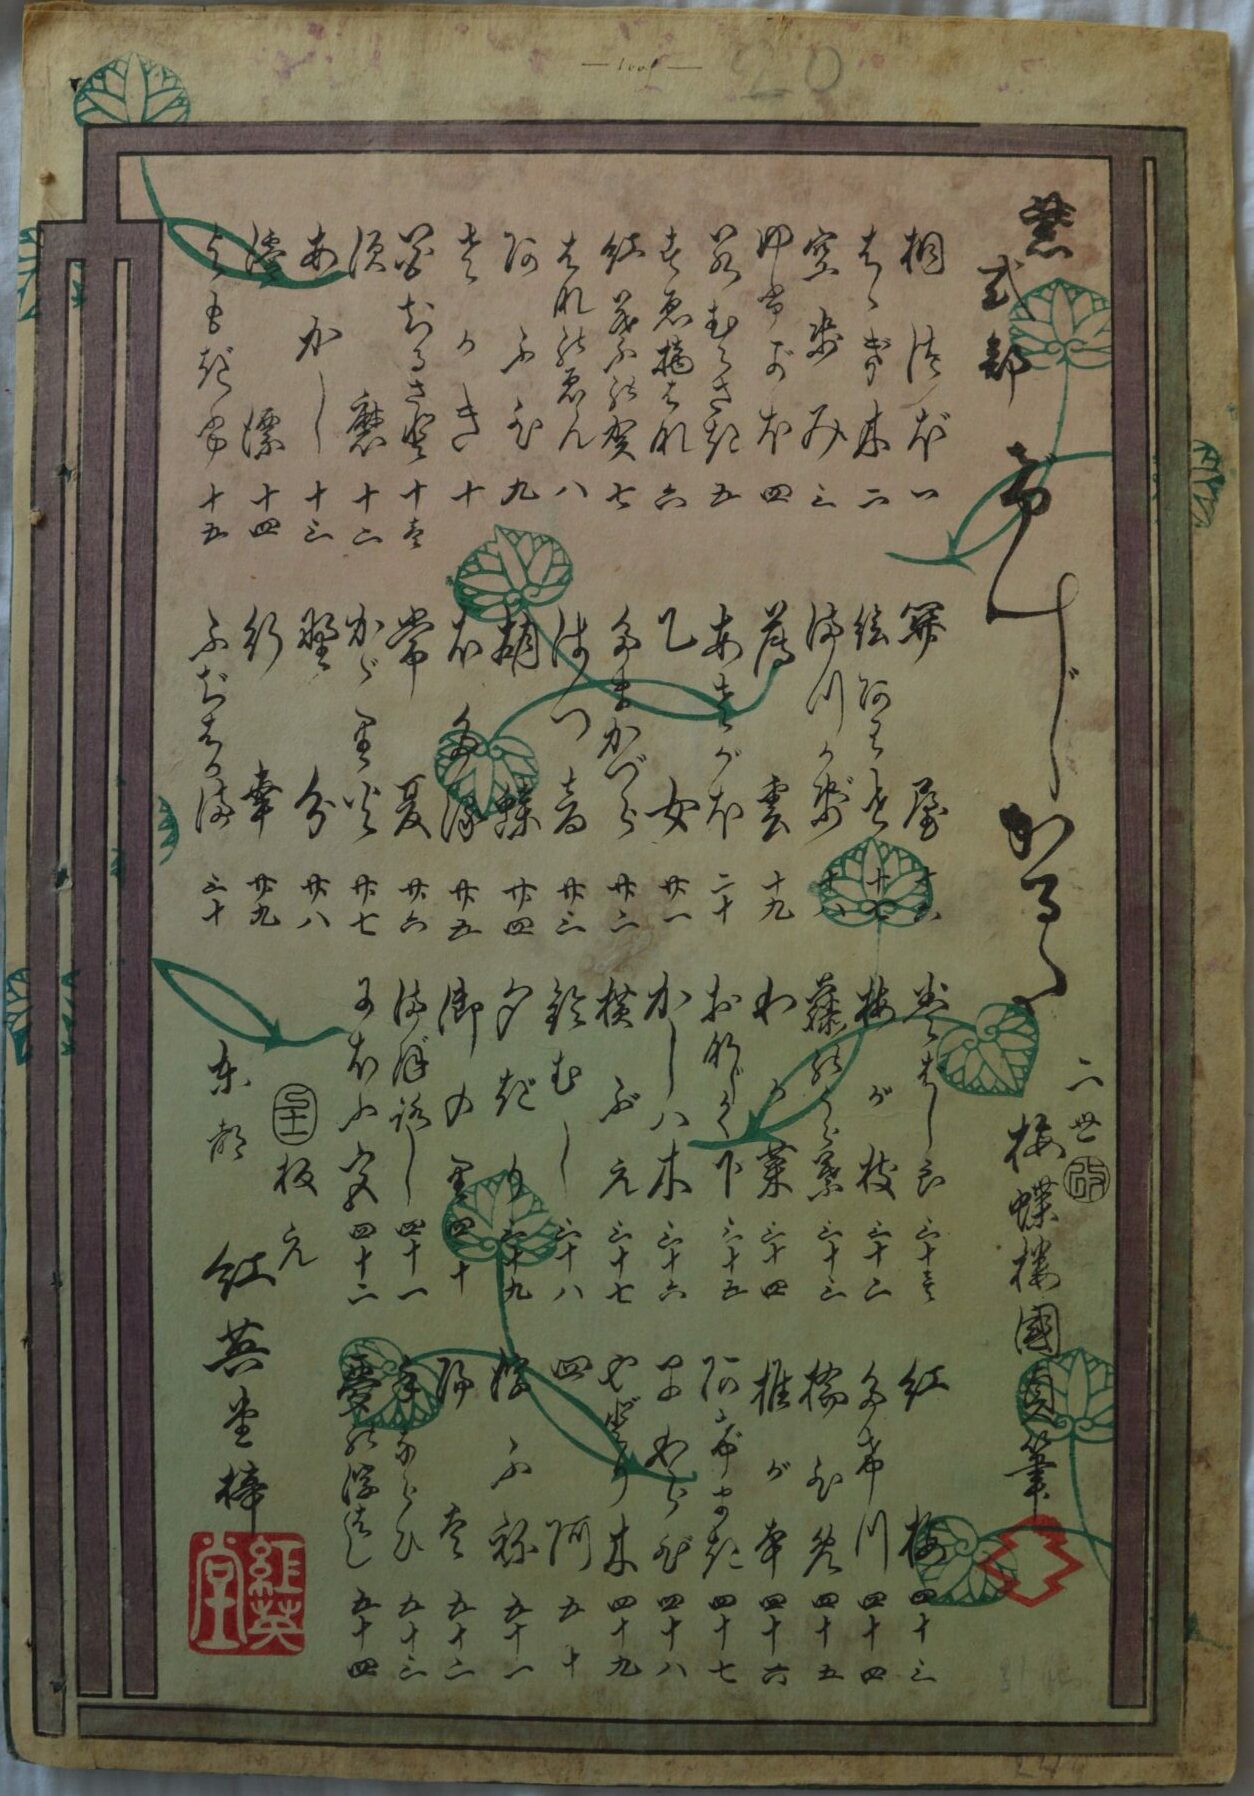 紫式部 げんじかるた
二世 改 梅蝶樓國貞筆
桐つぼ 一
はゝき木 二
空せみ 三
ゆふがほ 四
若むらさき 五
すゑ摘はな 六
紅葉の賀 七
はなのゑん 八
あふひ 九
さかき 十
花ちるさと 十壱
須磨 十二
あかし 十三
澪漂 十四
よもぎふ 十五
関屋 十六
絵あはせ 十七
まつかぜ 十八
薄雲 十九
あさがほ 二十
乙女 廿一
たまかづら 廿二
はつ音 廿三
胡蝶 廿四
ほたる 廿五
常夏 廿六
かゞり火 廿七
野分 廿八
行幸 廿九
ふぢはかま 三十
まきばしら 三十壱
梅が枝 三十二
藤のうら葉 三十三
わか菜 三十四
おなじく下 三十五
かしハ木 三十六
横ぶえ 三十七
鈴むし 三十八
夕ぎり 三十九
御のり 四十
まぼろし 四十一
にほふ宮 四十二
紅梅 四十三
たけ川 四十四
橋ひめ 四十五
椎が本 四十六
あげまき 四十七
さわらび 四十八
やどり木 四十九
四阿 五十
浮ふね 五十一
五十二
手ならひ 五十三
夢の浮はし 五十四
板元
東都 紅英堂梓
紅英堂